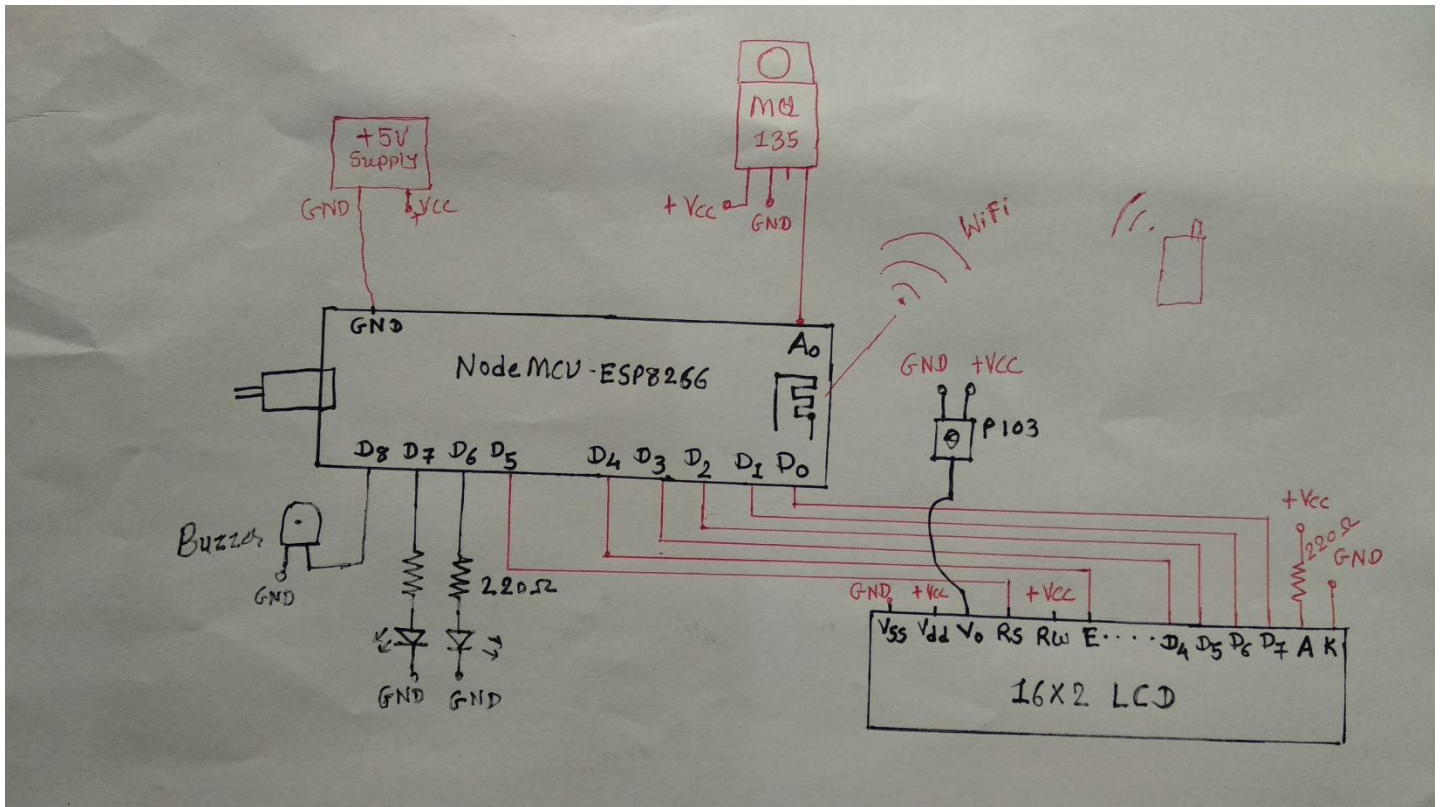 +5V
Supply
GND
+VCC
MQ
135
+ Vcc
GND
WiFi
GND
A0
NodeMCU-ESP8266
D8 D7 D6 D5 D4 D3 D2 D1 D0
GND +VCC
P103
Buzzer
GND
220Ω
GND GND
+Vcc
220Ω
GND
GND +Vcc +VCC
Vss Vdd V0 RS RW E..... D4 D5 D6 D7 A K
16X2 LCD